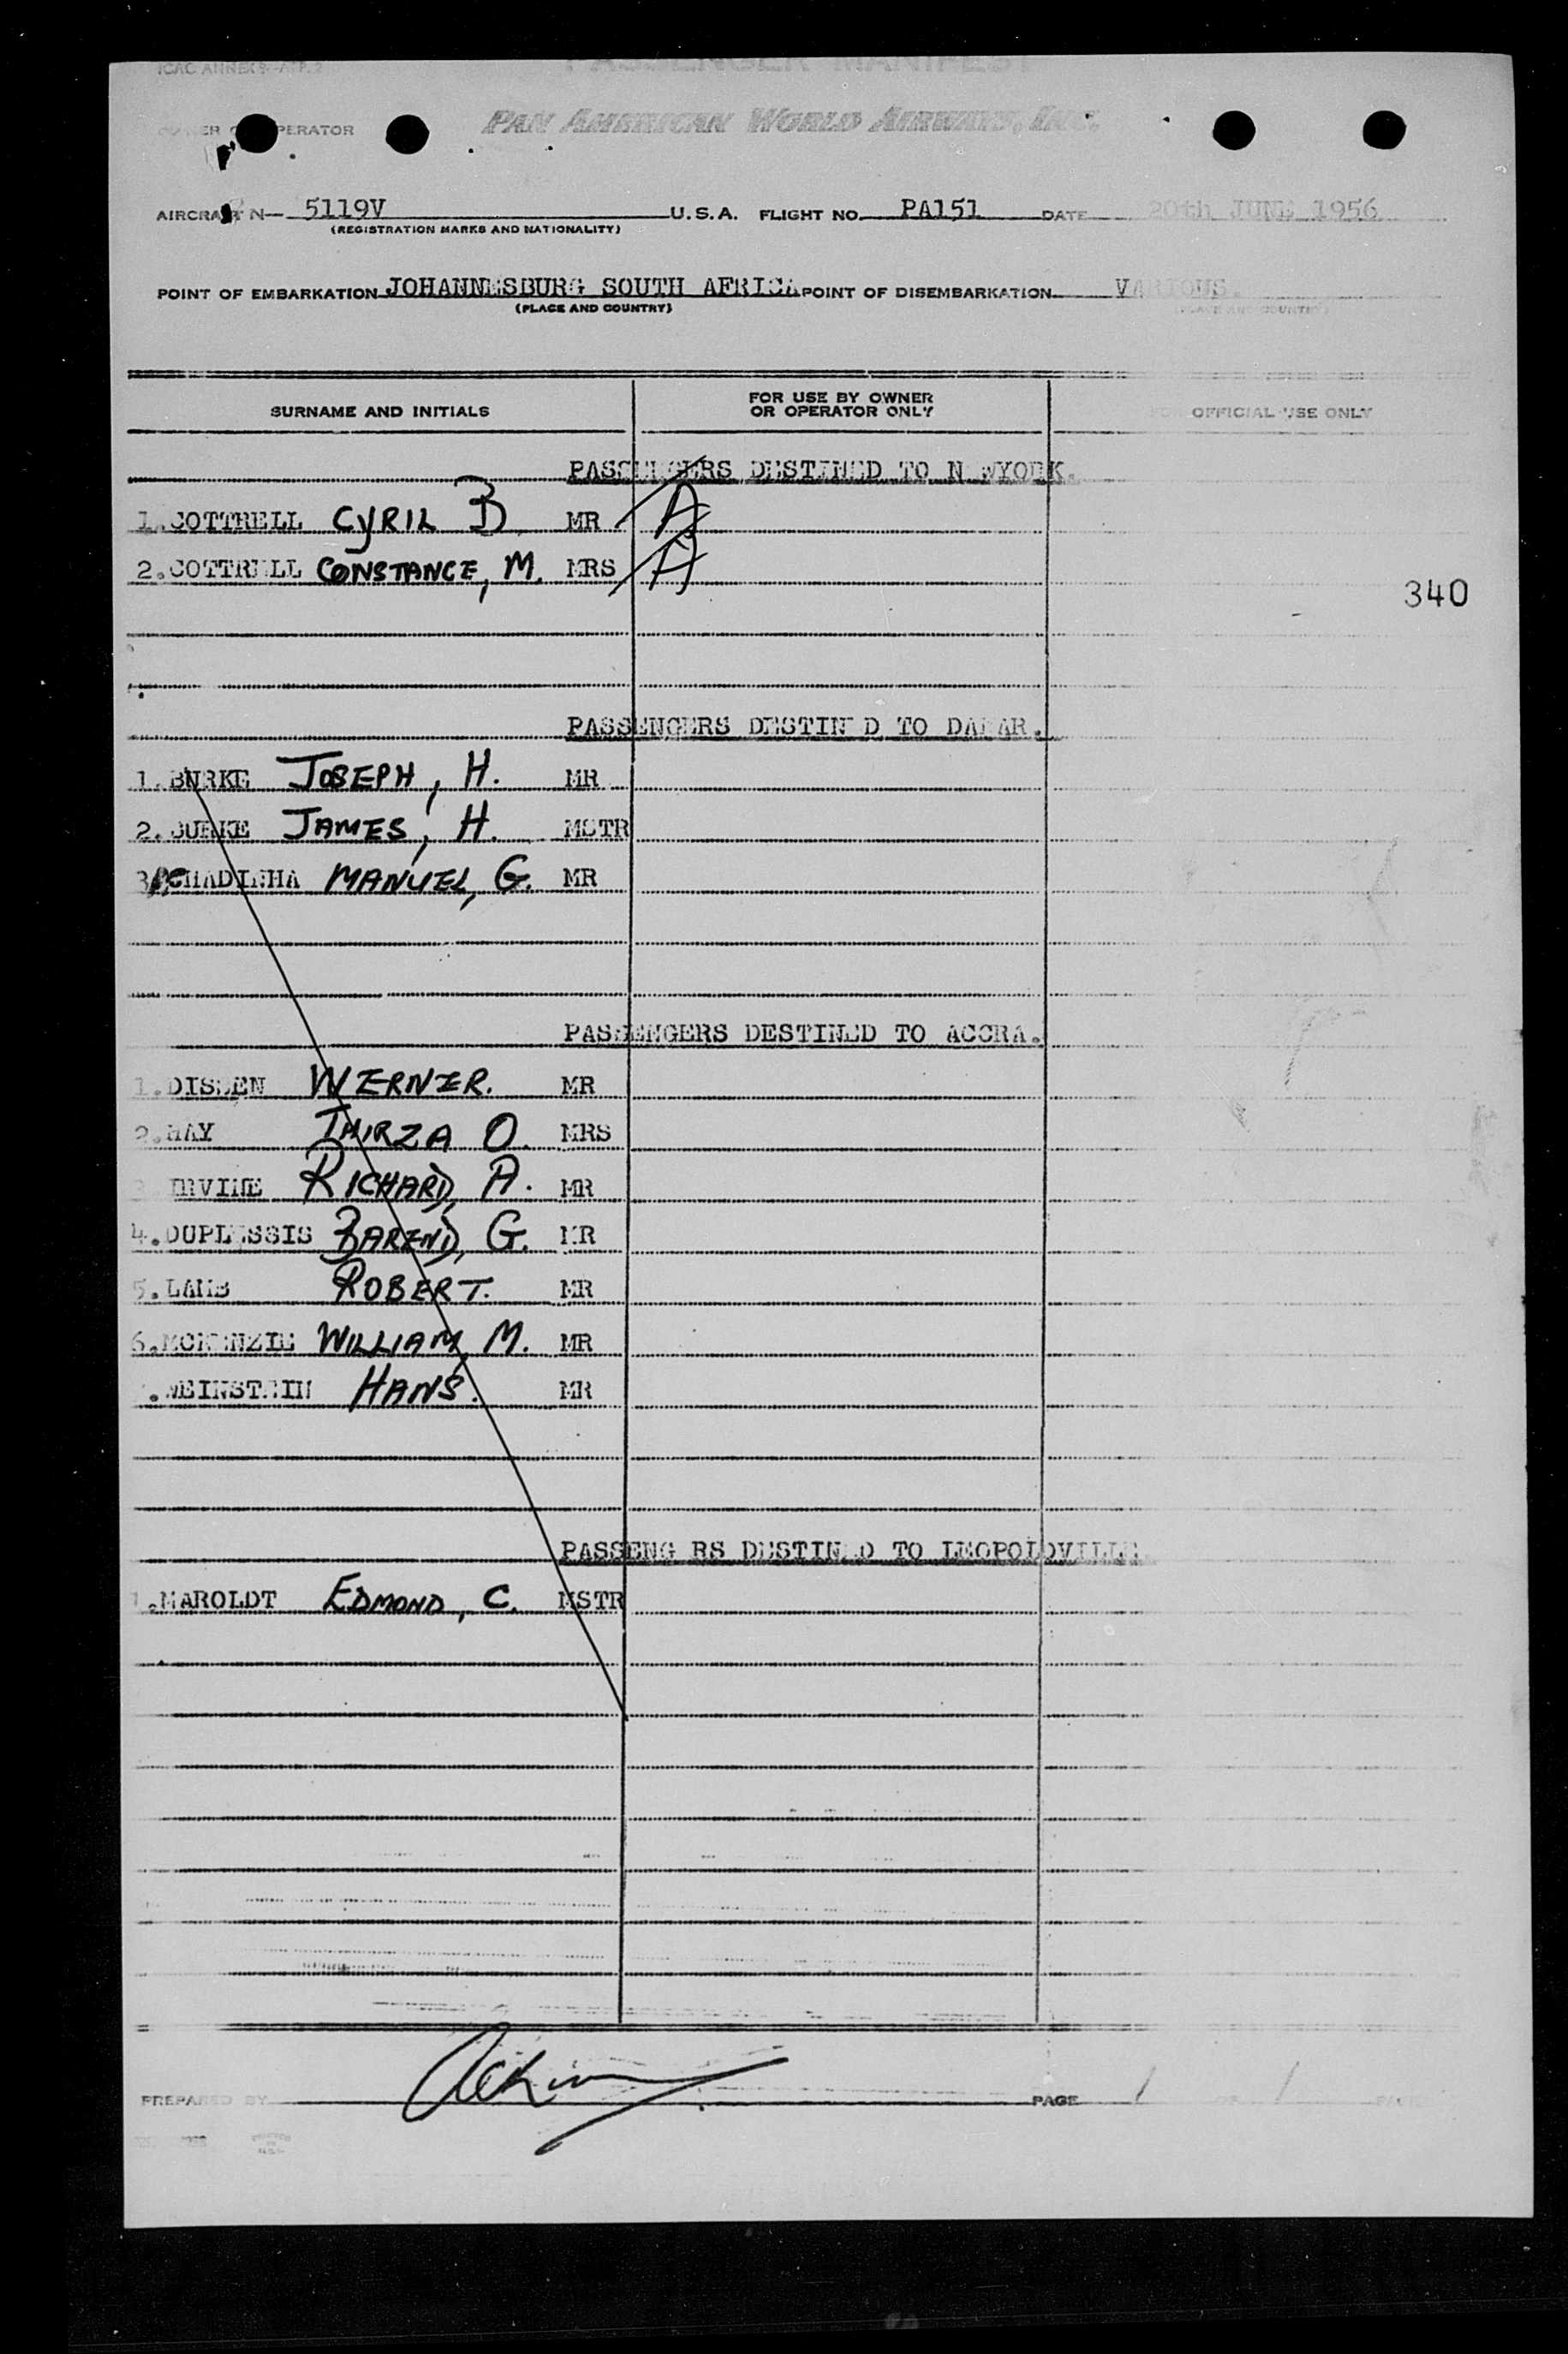 ICAO ANNEX 9-APP. 2
PASSENGER MANIFEST
OWNER OR OPERATOR PAN AMERICAN WORLD AIRWAYS, INC.
AIRCRAFT N— 5119V U.S.A. FLIGHT NO. PA151 DATE 20th JUNE 1956
(REGISTRATION MARKS AND NATIONALITY)
POINT OF EMBARKATION JOHANNESBURG SOUTH AFRICA POINT OF DISEMBARKATION VARIOUS.
(PLACE AND COUNTRY) (PLACE AND COUNTRY)
SURNAME AND INITIALS FOR USE BY OWNER OR OPERATOR ONLY FOR OFFICIAL USE ONLY
PASSENGERS DESTINED TO NEWYORK.
1.COTTRELL CYRIL B MR A
2.COTTRELL CONSTANCE, M. MRS A
340
PASSENGERS DESTINED TO DAKAR.
1.BURKE JOSEPH, H. MR
2.BURKE JAMES, H. MSTR
MANUEL, G. MR
PASSENGERS DESTINED TO ACCRA.
1.DISLEN WERNER. MR
2.HAY THIRZA O. MRS
3 IRVINE RICHARD, A. MR
4.DUPLESSIS BAREND, G. MR
5.LAMB ROBERT. MR
6.MCKENZIE WILLIAM, M. MR
.WEINSTEIN HANS. MR
PASSENGERS DESTINED TO LEOPOLDVILLE
1.MAROLDT EDMOND, C. MSTR
PREPARED BY PAGE 1 OF 1 PAGES